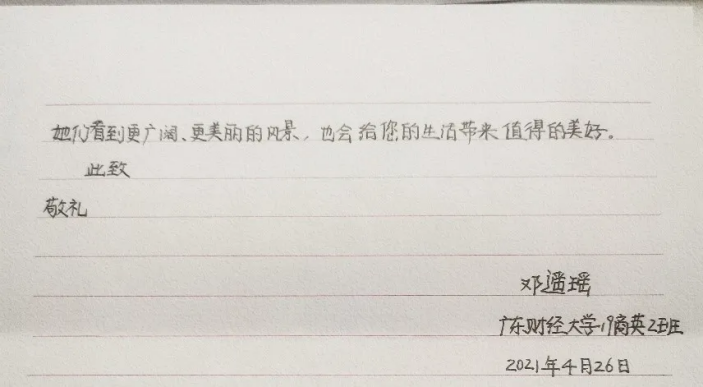 她们看到更广阔、更美丽的风景，也会给您的生活带来值得的美好。
此致
敬礼
邓遥瑶
广东财经大学19商英2班
2021年4月26日